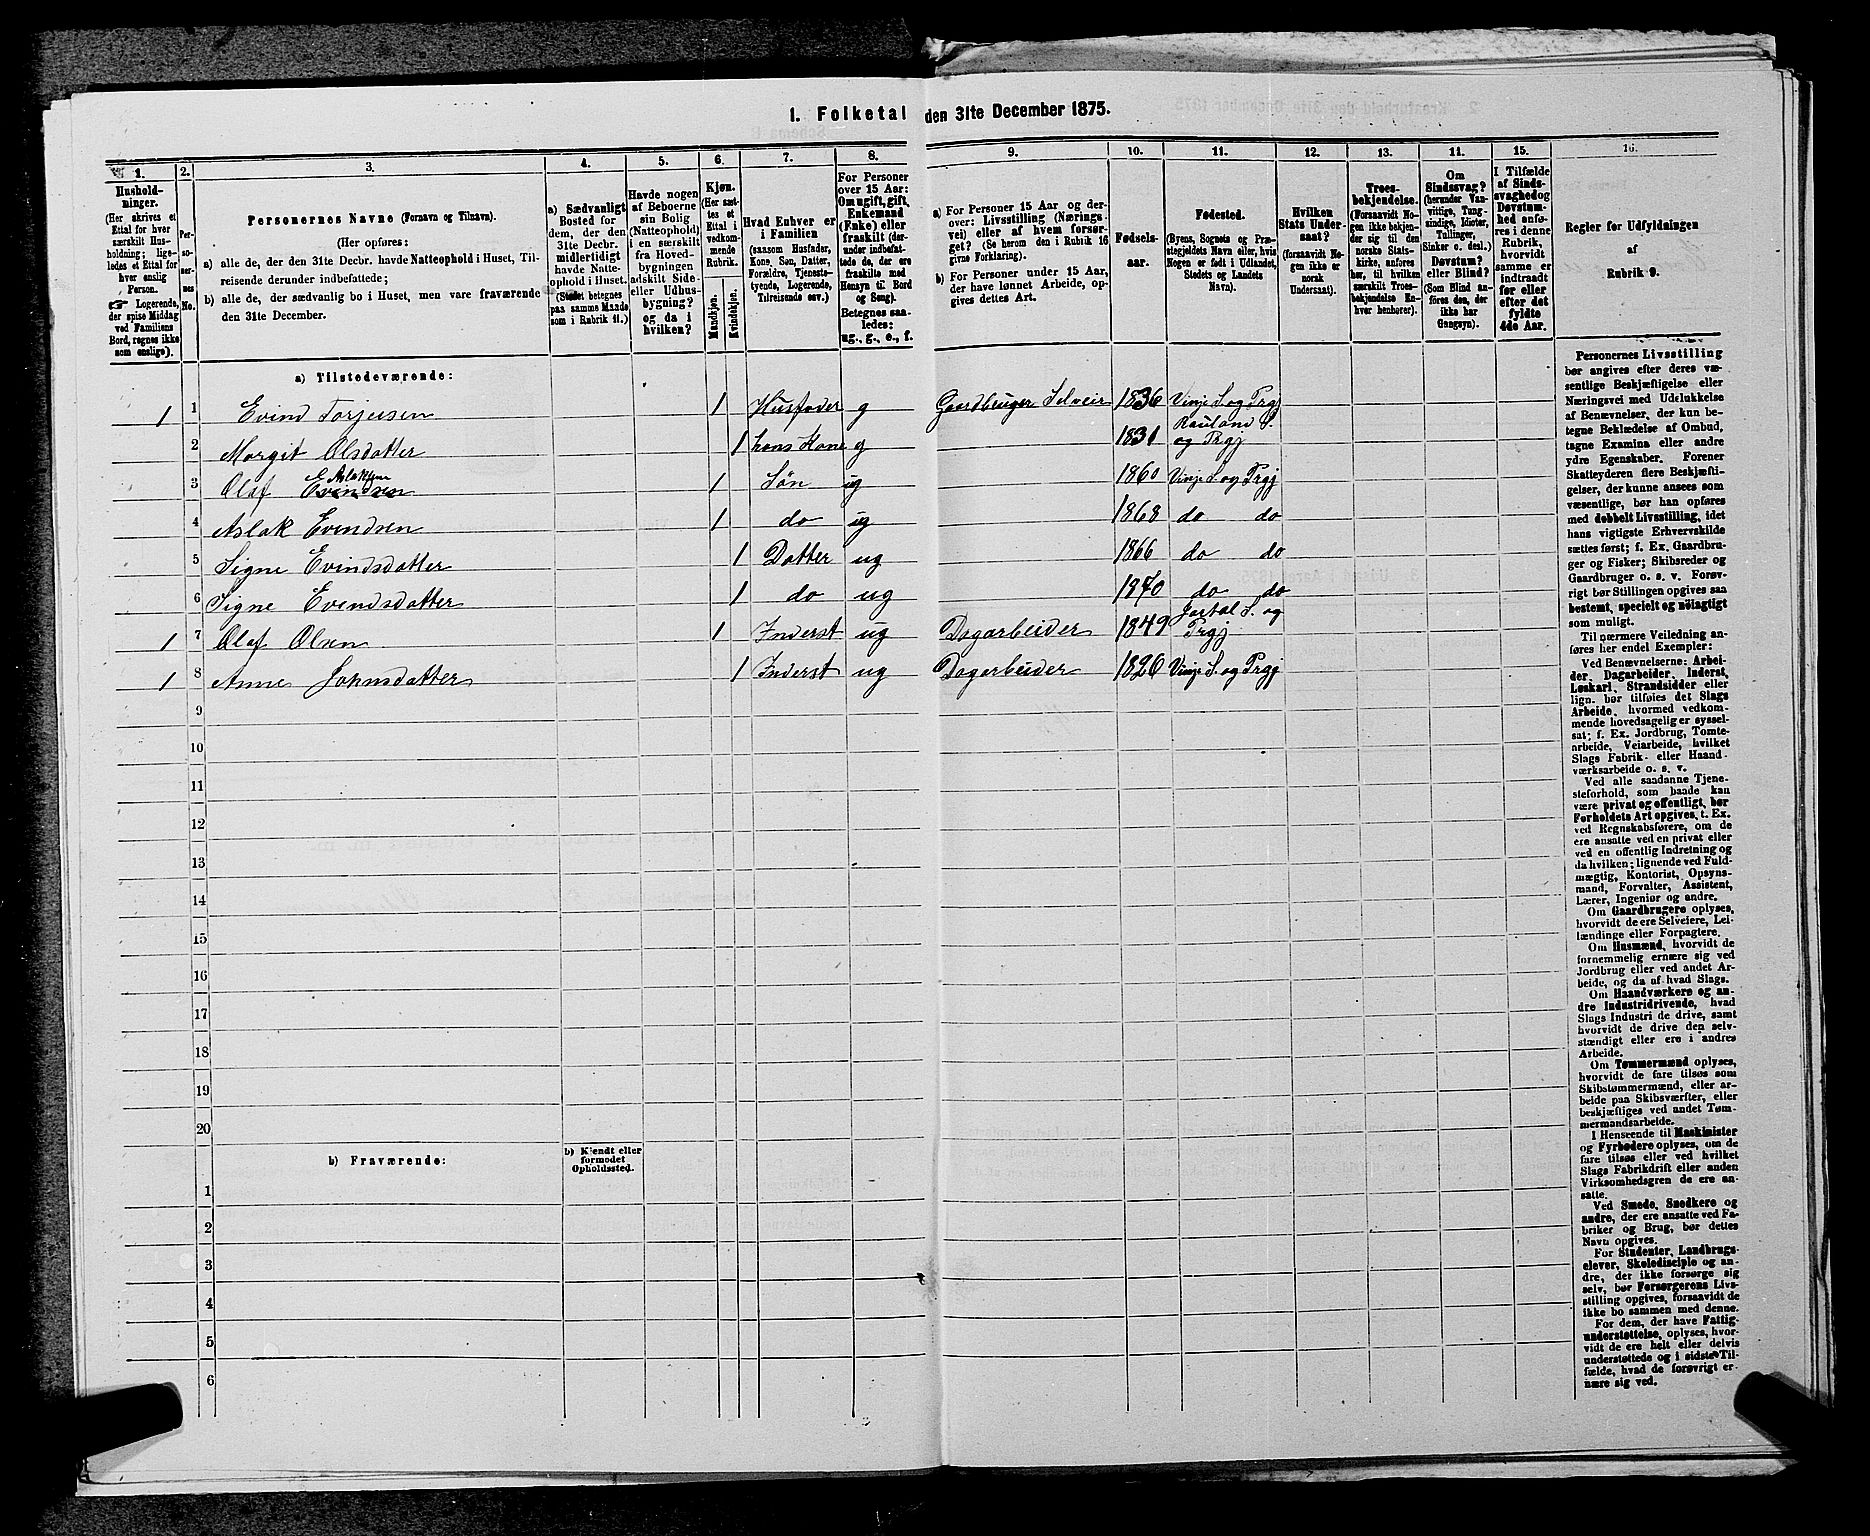 1. Folketal den 31te December 1875.
1.
Hushold-
ninger.
(Her skrives et
Ettal for hver
særskilt Hus-
holdning; lige-
ledes et Ettal for
hver enslig
Person.
☞ Logerende,
der spise Middag
ved Familiens
Bord, regnes ikke
som enslige).
2.
Per-
soner-
nes
No.
3.
Personernes Navne (Fornavn og Tilnavn).
(Her opføres:
a) alle de, der den 31te Decbr. havde Natteophold i Huset, Til-
reisende derunder indbefattede;
b) alle de, der sædvanlig bo i Huset, men vare fraværende
den 31te December.
4.
a) Sædvanligt
Bosted for
dem, der den
31te Decbr.
midlertidigt
havde Natte-
ophold i Huset.
(Stedet betegnes
paa samme Maade
som i Rubrik 11.)
5.
Havde nogen
af Beboerne
sin Bolig
(Natteophold)
i en særskilt
fra Hoved-
bygningen
adskilt Side-
eller Udhus-
bygning?
og da i
hvilken?
6.
Kjøn.
(Her sæt-
tes et
Ettal i
vedkom-
mende
Rubrik.
Mandkjøn.
Kvindekjøn.
7.
Hvad Enhver er
i Familien
(saasom Husfader,
Kone, Søn, Datter,
Forældre, Tjeneste-
tyende, Logerende,
Tilreisende osv.)
8.
For Personer
over 15 Aar:
Om ugift, gift,
Enkemand
(Enke) eller
fraskilt (der-
under indbefat-
tede de, der ere
fraskilte med
Hensyn til Bord
og Seng).
Betegnes saa-
ledes:
ug., g., e., f.
9.
a) For Personer 15 Aar og der-
over: Livsstilling (Nærings-
vei) eller af hvem forsør-
get? (Se herom den i Rubrik 16
givne Forklaring).
b) For Personer under 15 Aar,
der have lønnet Arbeide, op-
gives dettes Art.
10.
Fødsels-
aar.
11.
Fødested.
(Byens, Sognets og Præ-
stegjeldets Navn eller, hvis
Nogen er født i Udlandet,
Stedets og Landets
Navn).
12.
Hvilken
Stats Under-
saat?
(forsaavidt No-
gen ikke er
norsk
Undersaat).
13.
Troes-
bekjendelse.
(Forsaavidt No-
gen ikke bekjen-
der sig til den
norske Stats-
kirke, anføres
her, til hvilken
særskilt Troes-
bekjendelse En-
hver henhører).
11.
Om
Sindssvag?
(herunder Van-
vittige, Tung-
sindige, Idioter,
Tullinger,
Sinker o. desl.)
Døvstum?
eller Blind?
(Som Blind an-
føres den, der
ikke har
Gangsyn).
15.
I Tilfælde
af Sinds-
svaghed og
Døvstum-
hed anfø-
res i denne
Rubrik,
hvorvidt
samme er
indtraadt
før eller
efter det
fyldte
4de Aar.
16.
Regler for Udfyldningen
af
Rubrik 9.
a) Tilstedeværende:
1 1 Evind Torjersen 1 Husfader g Gaardbruger Selveier 1836 Vinje S. og Prgj
2 Morgit Olsdatter 1 hans Kone g 1831 Rauland S. og Prgj
3 Olaf Evindsen Aslaksen 1 Søn ug 1860 Vinje S. og Prgj
4 Aslak Evendsen 1 do ug 1868 do do
5 Signe Evindsdatter 1 Datter ug 1866 do do
6 Signe Evendsdatter 1 do ug 1870 do do
1 7 Olaf Olsen 1 Inderst ug Dagarbeider 1849 S. og Prgj
1 8 Anne Johnsdatter 1 Inderst ug Dagarbeider 1826 Vinje S. og Prgj
9
10
11
12
13
14
15
16
17
18
19
20
b) Fraværende:
b) Kjendt eller
formodet
Opholdssted.
1
2
3
4
5
6
Personernes Livsstilling
bør angives efter deres væ-
sentlige Beskjæftigelse eller
Næringsvei med Udelukkelse
af Benævnelser, der kun be-
tegne Beklædelse af Ombud,
tagne Examina eller andre
ydre Egenskaber. Forener
Skatteyderen flere Beskjæfti-
gelser, der kunne ansees som
væsentlige, bør han opføres
med dobbelt Livsstilling, idet
hans vigtigste Erhvervskilde
sættes først; f. Ex. Gaardbru-
ger og Fisker; Skibsreder og
Gaardbruger o. s. v. Forøv-
rigt bør Stillingen opgives saa
bestemt, specielt og nöiagtigt
som muligt.
Til nærmere Veiledning an-
føres her endel Exempler:
Ved Benævnelserne: Arbei-
der, Dagarbeider, Inderst,
Løskarl, Strandsidder eller
lign. bør tilføies det Slags
Arbeide, hvormed vedkom-
mende hovedsagelig er syssel-
sat; f. Ex. Jordbrug, Tomte-
arbeide, Veiarbeide, hvilket
Slags Fabrik- eller Haand-
værksarbeide o. s. v.
Ved alle saadanne Tjene-
steforhold, som baade kan
være privat og offentligt, bør
Forholdets Art opgives, t. Ex.
ved Regnskabsførere, om de
ere ansatte ved en privat eller
ved en offentlig Indretning og
da hvilken; lignende ved Fuld-
mægtig, Kontorist, Opsyns-
mand, Forvalter, Assistent,
Lærer, Ingeniør og andre.
Om Gaardbrugere oplyses,
hvorvidt de ere Selveiere, Lei-
lændinge eller Forpagtere.
Om Husmænd, hvorvidt de
fornemmelig ernære sig ved
Jordbrug eller ved andet Ar-
beide, og da af hvad Slags.
Om Haandværkere og an-
dre Industridrivende, hvad
Slags Industri de drive, samt
hvorvidt de drive den selv-
stændigt eller ere i andres
Arbeide.
Om Tømmermænd oplyses,
hvorvidt de fare tilsøs som
Skibstømmermænd, eller ar-
beide paa Skibsværfter, eller
beskjæftiges ved andet Tøm-
mermandsarbeide.
I Henseende til Maskinister
og Fyrbødere oplyses, om de
fare tilsøs eller ved hvilket
Slags Fabrikdrift eller anden
Virksomhedsgren de ere an-
satte.
Ved Smede, Snedkere og
andre, der ere ansatte ved Fa-
briker og Brug, bør dettes
Navn opgives.
For Studenter, Landbrugs-
elever, Skoledisciple og an-
dre, der ikke forsørge sig
selv, bør Forsørgerens Livs-
stilling opgives, forsaavidt de
ikke bo sammen med denne.
For dem, der have Fattig-
understøttelse, oplyses, hvor-
vidt de ere helt eller delvis
understøttede og i sidste Til-
fælde, hvad de forøvrigt er-
nære sig ved.